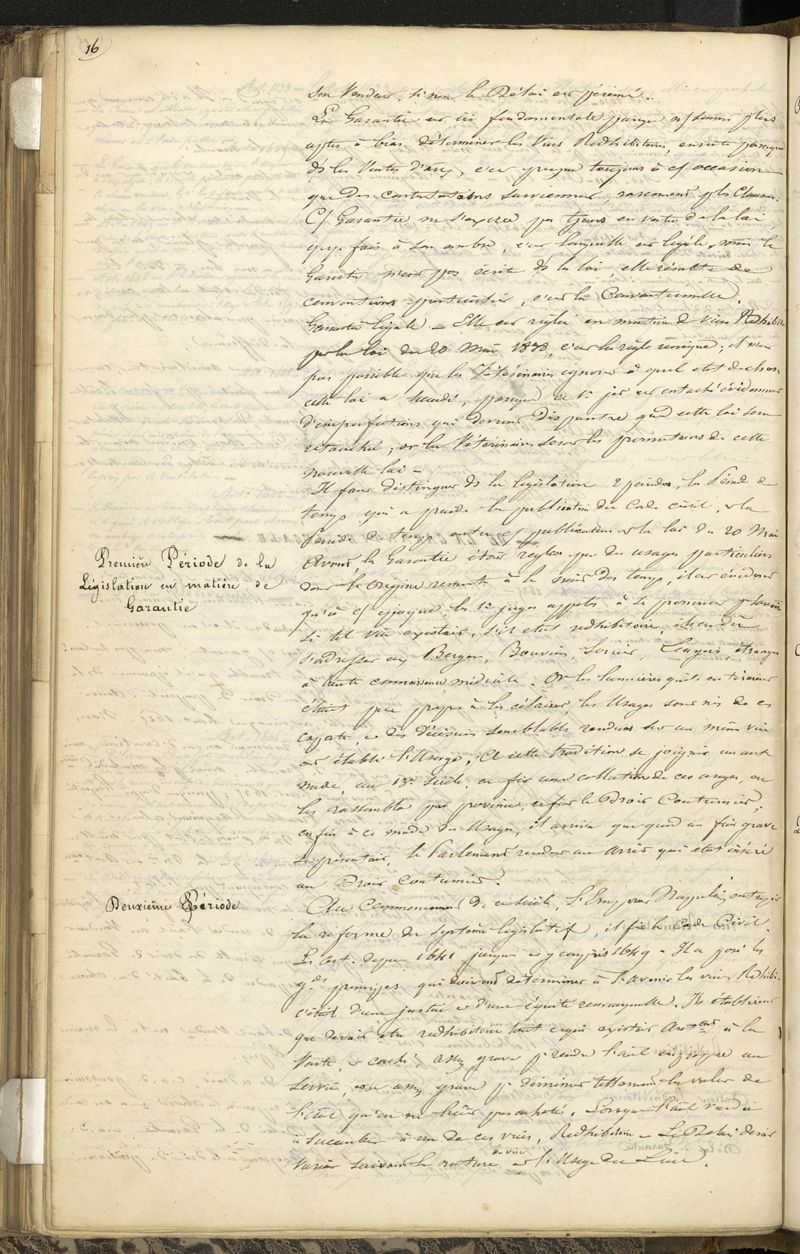 16
Son Vendeur, si non le Délai est périmé.
La Garantie est ici fondamentale parceque n/ sommes plus
aptes à bien déterminer les Vices Redhibitoires, ensuite parceque
ds les Ventes d'anx, c'est presque toujours à c/ occasion
que des contestations surviennent, rarement p/ les
C/ Garantie ne s'exerce pas tjours en vertu de la loi
q.q.fois à son ombre, c'est lorsqu'elle est légale, mais la
Garantie n'est pas écrite ds la loi, elle résulte de
conventions particulières, c'est la Conventionnelle.
Garantie légale = Elle est réglée en matière de Vices Redhibit.
par la loi du 20 Mai 1838, c'est la règle unique; il n'est
pas possible que les Vétérinaires ignorent à quel état de choses
cette loi a succédé, parceque ce est entaché évidemment
d'imperfections qui devront disparaitre qud cette loi sera
retouchée, or les Vétérinaires seront les promoteurs de cette
nouvelle loi =
Il faut distinguer ds la législation 2 périodes, la Période de
temps qui a précédé la publication du Code civil, & la
Période de temps entre c/ publication & la loi du 20 Mai
Première Période de la
Législation en matière de
Garantie
Avant, la Garantie était réglée par des usages particuliers
dont l'origine remonte à la nuit des temps, il est évident
qu'à c/ époque les juges appelés à se prononcer p/ savoir
si tel vice existait, s'il était redhibitoire,
s'adresser aux Berger, Bouvier, Sorcier, étrangers
à toute connaissance médicale. Or les lumières qu'ils en tirèrent
étant peu propres à les éclairer, les Usages sont nés de ces
rapports, & des décisions semblables rendues sur un même vice
ont établi l'Usage. A cette tradition se joignit un autre
mode, au 13e Siècle, on fit une collection de ces usages, on
les rassembla par province, ce fut le Droit Coutumier;
enfin à ce mode des Usages, il arriva que quand un fait grave
se présentait, le Parlement rendait un Arrêt qui était inséré
au Droit coutumier.
Deuxième Période
Au Commencement de ce siècle, l'Empereur Napoléon entreprit
la réforme du Système législatif, il fit le Code Civil.
Les Art. depuis 1641 jusque et y compris 1649 = Il a posé les
gds principes, qui doivent déterminer à l'avenir les vices Redhibi-
c'était d'une justice & d'une équité remarquable. Ils établirent
que devait être redhibitoire tout ce qui existait à la
Vente, & caché assez grave p/ rendre l'anl impropre au
service, ou assez grave p/ diminuer tellement la valeur de
l'anl qu'on ne l'eût pas acheté. Lorsque l'anl vendu
a succombé à un de ces vices, Redhibitoire = Le Délai devait
varier suivant la nature du vice et l'Usage du Lieu.